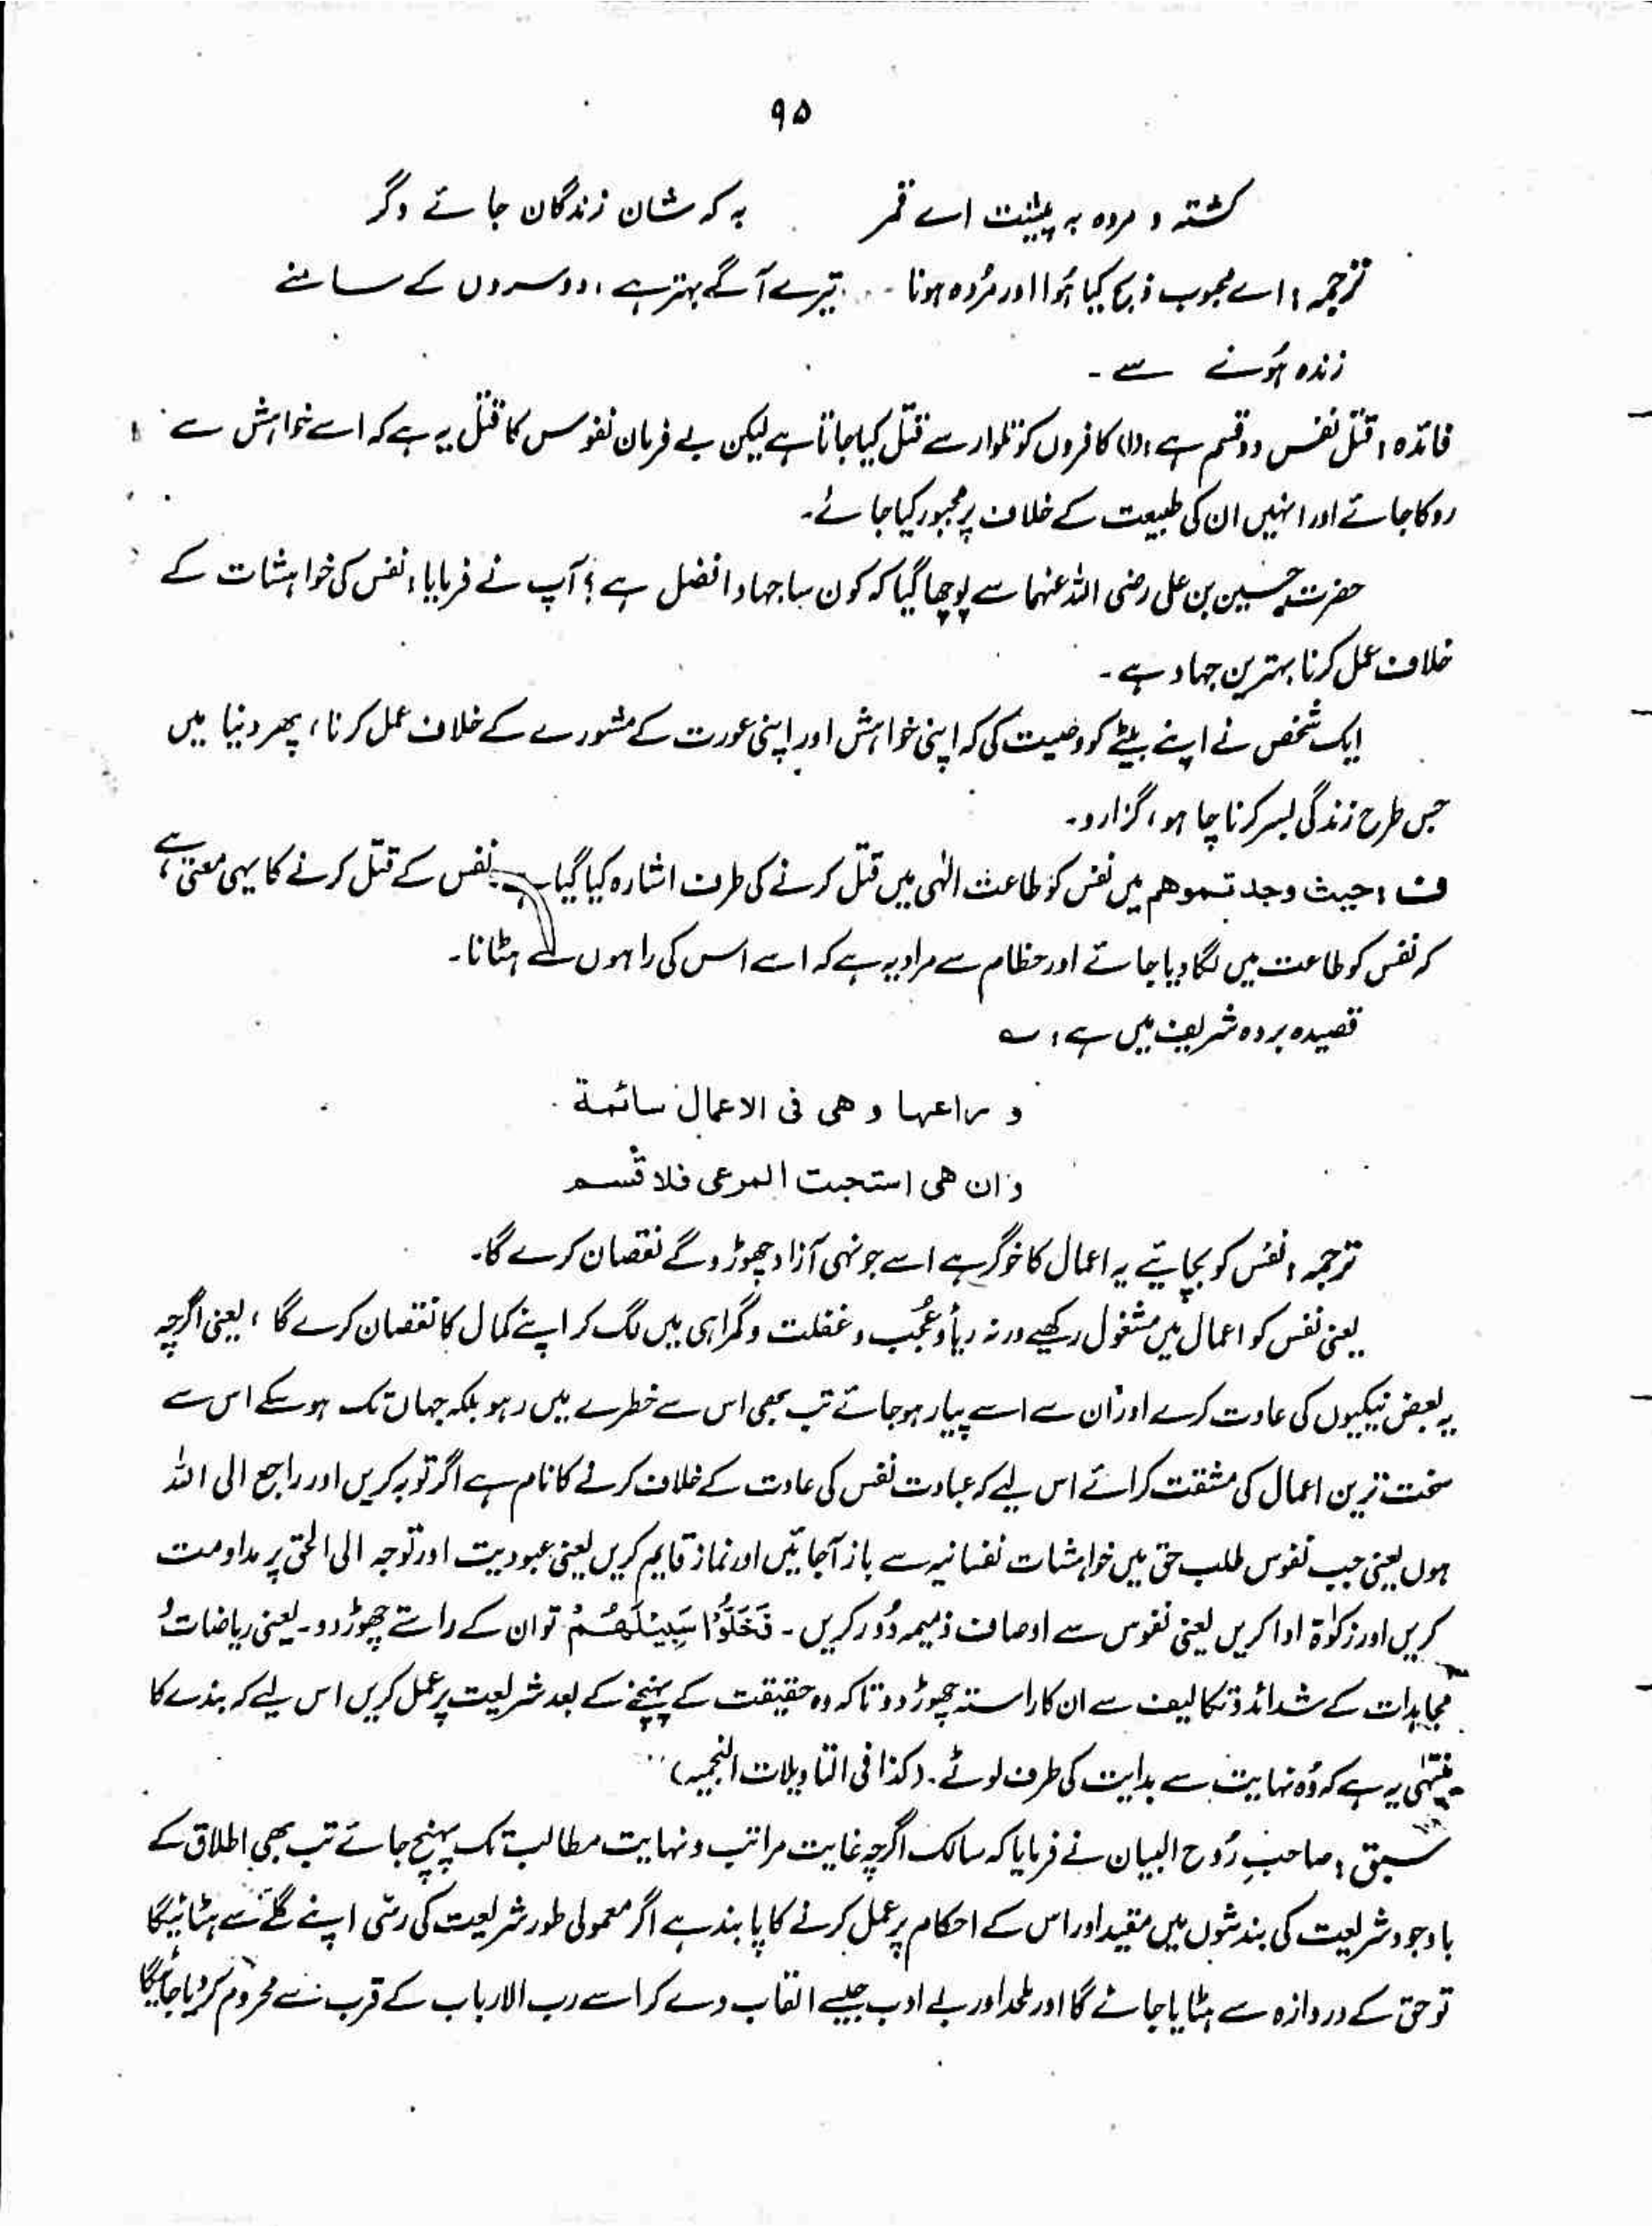 ۹۵
کشتہ و مردہ بہ پیشت اے قمر    بہ کہ شان زندگان جائے دگر
ترجمہ: اے محبوب ذبح کیا ہُوا اور مُردہ ہونا تیرے آگے بہتر ہے، دوسروں کے سامنے
زندہ ہُونے سے ۔
فائدہ: قتل نفس دو قسم ہے: (۱) کافروں کو تلوار سے قتل کیا جاتا ہے لیکن بے فرمان نفوس کا قتل یہ ہے کہ اسے خواہش سے
روکا جائے اور انہیں ان کی طبیعت کے خلاف پر مجبور کیا جائے۔
حضرت حسین بن علی رضی اللہ عنہما سے پوچھا گیا کہ کون سا جہاد افضل ہے؟ آپ نے فرمایا: نفس کی خواہشات کے
خلاف عمل کرنا بہترین جہاد ہے ۔
ایک شخص نے اپنے بیٹے کو وصیت کی کہ اپنی خواہش اور اپنی عورت کے مشورے کے خلاف عمل کرنا، پھر دنیا میں
جس طرح زندگی بسر کرنا چاہو، گزارو۔
ف: حیث وجدتموھم میں نفس کو طاعت الٰہی میں قتل کرنے کی طرف اشارہ کیا گیا ہے۔ نفس کے قتل کرنے کا یہی معنیٰ ہے،
کہ نفس کو طاعت میں لگا دیا جائے اور حظام سے مراد یہ ہے کہ اسے اس کی راہوں سے ہٹانا۔
قصیدہ بردہ شریف میں ہے: ؎
و راعہا و ھی فی الاعمال سائمة
وان ھی استحبت المرعی فلا تسم
ترجمہ: نفس کو بچائیے یہ اعمال کا خوگر ہے اسے جونہی آزاد چھوڑو گے نقصان کرے گا۔
یعنی نفس کو اعمال میں مشغول رکھیے ورنہ ریأ و عُجُب و غفلت و گمراہی میں لگ کر اپنے کمال کا نقصان کرے گا، یعنی اگرچہ
یہ بعض نیکیوں کی عادت کرے اور اُن سے اسے پیار ہو جائے تب بھی اس سے خطرے میں رہو بلکہ جہاں تک ہو سکے اس سے
سخت ترین اعمال کی مشقت کرائے اس لیے کہ عبادت نفس کی عادت کے خلاف کرنے کا نام ہے اگر توبہ کریں اور راجع الی اللہ
ہوں یعنی جب نفوس طلب حق میں خواہشات نفسانیہ سے باز آجائیں اور نماز قایم کریں یعنی عبودیت اور توجہ الی الحق پر مداومت
کریں اور زکوٰة ادا کریں یعنی نفوس سے اوصاف ذمیمہ دُور کریں ۔ فَخَلُّوْا سَبِیْلَھُمْ تو ان کے راستے چھوڑ دو ۔ یعنی ریاضات و
مجاہدات کے شدائد و تکالیف سے ان کا راستہ چھوڑ دو تاکہ وہ حقیقت کے پہنچنے کے بعد شریعت پر عمل کریں اس لیے کہ بندے کا
منتہٰی یہ ہے کہ وُہ نہایت سے ہدایت کی طرف لوٹے ۔ (کذا فی التاویلات النجمیہ)
سبق: صاحبِ رُوح البیان نے فرمایا کہ سالک اگرچہ غایت مراتب و نہایت مطالب تک پہنچ جائے تب بھی اطلاق کے
باوجود شریعت کی بندشوں میں مقید اور اس کے احکام پر عمل کرنے کا پابند ہے اگر معمولی طور شریعت کی رسّی اپنے گلے سے ہٹائیگا
تو حق کے دروازہ سے ہٹایا جائے گا اور ملحد اور بے ادب جیسے القاب دے کر اسے رب الارباب کے قرب سے محروم کر دیا جائیگا